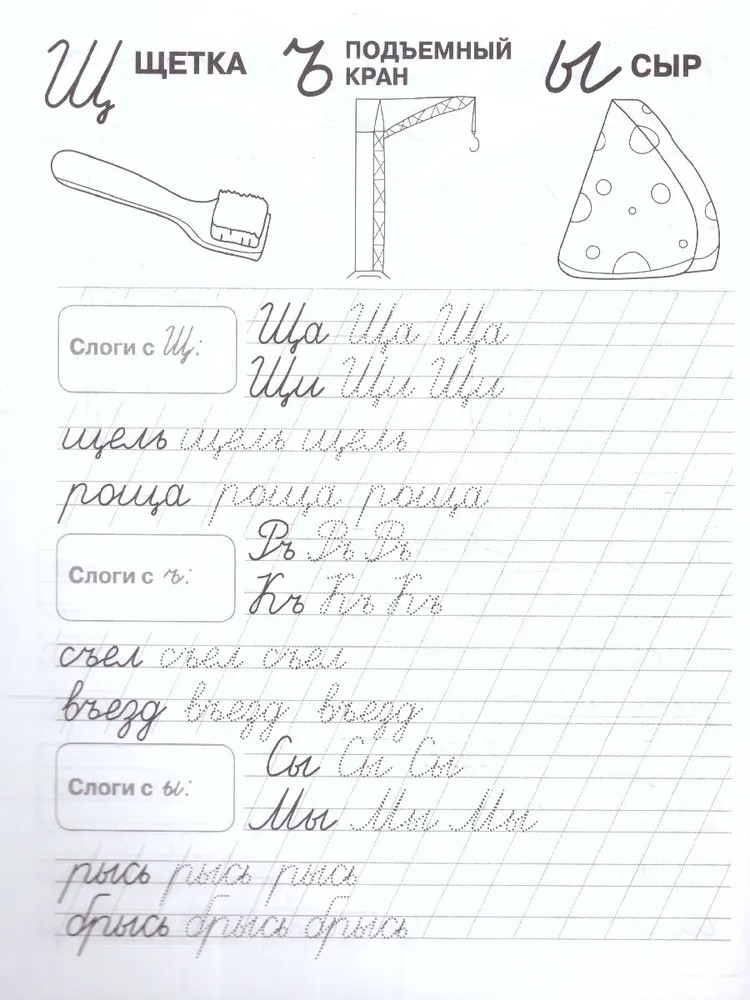 Щ ЩЕТКА ъ ПОДЪЕМНЫЙ КРАН ы СЫР
Слоги с Щ:
Ща Ща Ща
Щи Щи Щи
щель щель щель
роща роща роща
Слоги с ъ:
Ръ Ръ Ръ
Къ Къ Къ
съел съел съел
въезд въезд въезд
Слоги с ы:
Сы Сы Сы
Мы Мы Мы
рысь рысь рысь
брысь брысь брысь